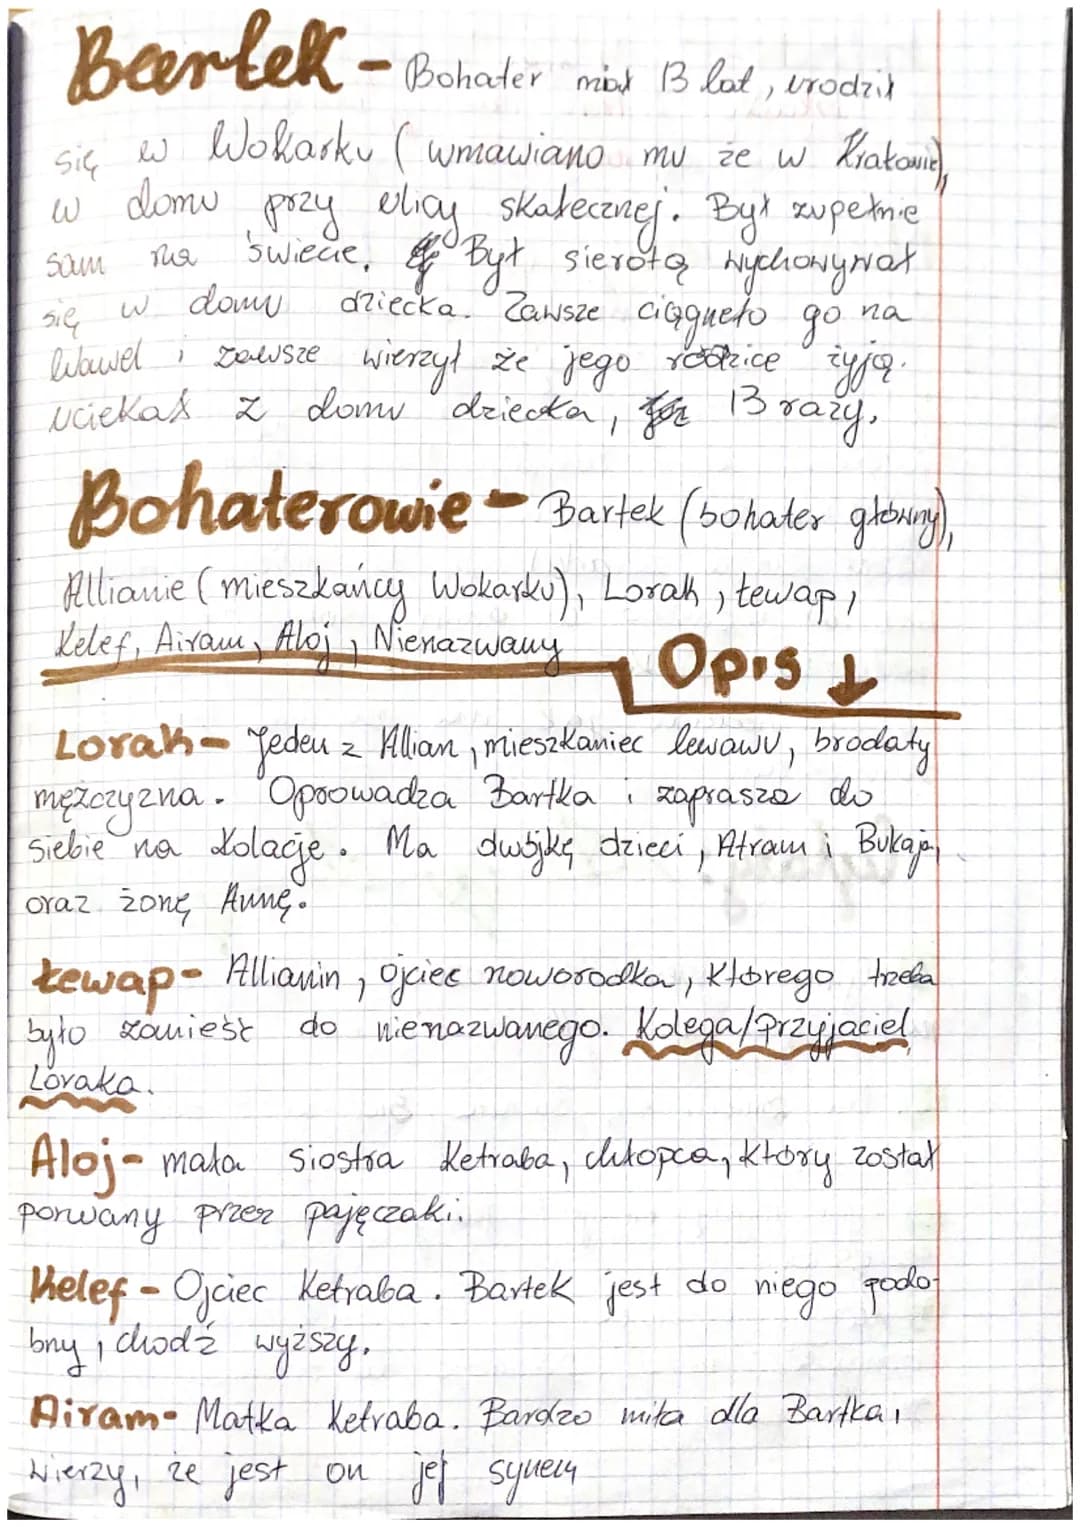 Bartek - Bohater miał 13 lat, urodził
się w Wokarku (wmawiano mu że w Krakowie),
w domu przy ulicy skałecznej. Był zupełnie
sam na świecie. Był sierotą wychowywał
się w domu dziecka. Zawsze ciągneło go na
Wawel i zawsze wierzył że jego rodzice żyją.
uciekał z domu dziecka, 13 razy.
Bohaterowie - Bartek (bohater główny),
Allianie (mieszkańcy Wokarku), Lorak, Łewap,
Kelef, Airam, Aloj, Nienazwany
Opis ↓
Lorak - Jeden z Allian, mieszkaniec lewawu, brodaty
mężczyzna. Oprowadza Bartka i zaprasza do
siebie na kolację. Ma dwójkę dzieci, Atram i Bukaja,
oraz żonę Annę.
Łewap - Allianin, ojciec noworodka, którego trzeba
było zanieść do nienazwanego. Kolega/Przyjaciel
Loraka.
Aloj - mała siostra Ketraba, chłopca, który został
porwany przez pajęczaki.
Kelef - Ojciec Ketraba. Bartek jest do niego podo-
bny, chodź wyższy.
Airam - Matka Ketraba. Bardzo miła dla Bartka,
wierzy, że jest on jej synem